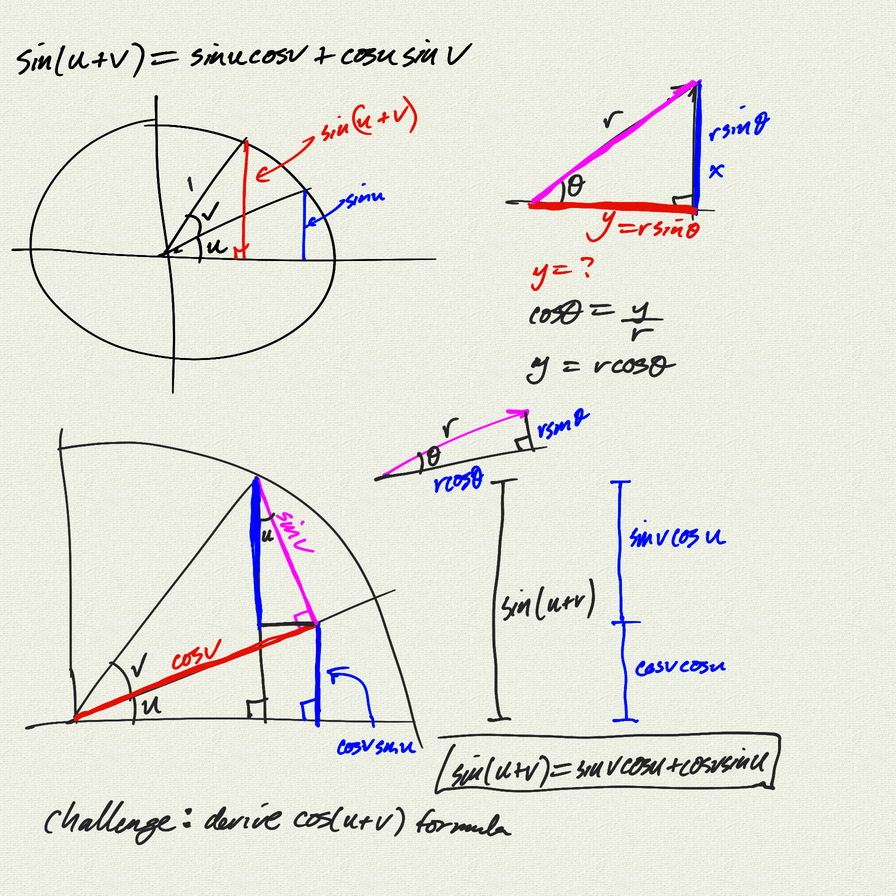 sin(u+v) = sinu cosv + cosu sinv
sin(u+v)
sinu
1
v
u
r
rsinθ
x
θ
y = rsinθ
y = ?
cosθ = y/r
y = rcosθ
r
θ
rsinθ
rcosθ
u
sinv
cosv
v
u
cosvsinu
sin(u+v)
sinvcosu
cosvcosu
sin(u+v) = sinvcosu + cosvsinu
Challenge: derive cos(u+v) formula